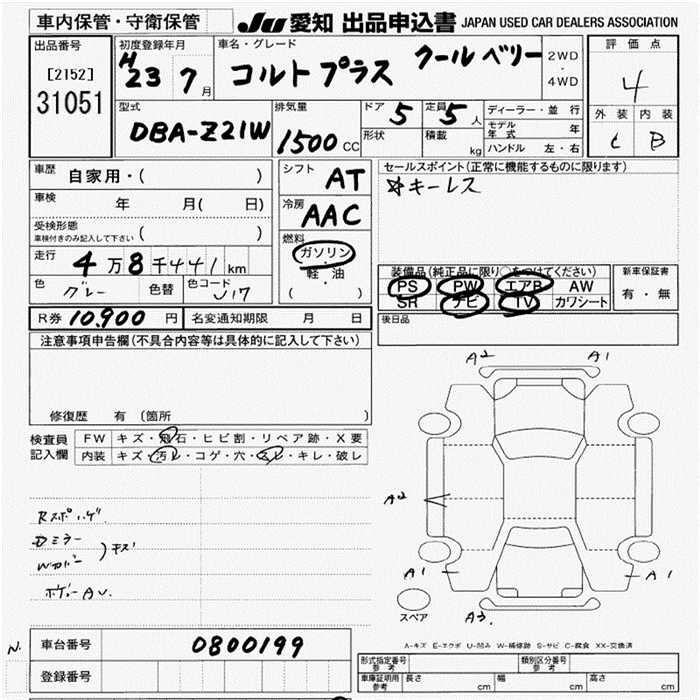 車内保管・守衛保管
JU 愛知 出品申込書 JAPAN USED CAR DEALERS ASSOCIATION
出品番号
[2152]
31051
初度登録年月
H 23 7月
車名・グレード
コルトプラス クールベリー
2WD
・
4WD
評価点
4
外装 内装
C B
型式
DBA-Z21W
排気量
1500 CC
ドア 5
形状
定員 5 人
積載 kg
ディーラー・並行
モデル年式 年
ハンドル 左・右
車歴 自家用・( )
車検 年 月( 日)
受検形態
車検付きのみ記入して下さい ( )
走行 4万8千441km
色 グレー 色替 色コード U17
シフト AT
冷房 AAC
燃料
ガソリン
・
軽・油
( )
セールスポイント(正常に機能するものに限ります)
☆キーレス
装備品(純正品に限り○をつけてください)
PS PW エアB AW
SR ナビ TV カワシート
新車保証書
有・無
後日品
R券 10,900円
名変通知期限 月 日
注意事項申告欄(不具合内容等は具体的に記入して下さい)
修復歴 有 (箇所
検査員
記入欄
FW キズ・飛石・ヒビ割・リペア跡・X要
内装 キズ・汚レ・コゲ・穴・スレ・キレ・破レ
Rスポ ハゲ
Dミラー
Wカバー
)キズ
ボデーAU
A2 A1
A2
A1 A1
A3
スペア
A-キズ E-エクボ U-凹み W-補修跡 S-サビ C-腐食 XX-交換済
N.
車台番号 0800199
登録番号
形式指定番号
参考
類別区分番号
参考
車庫証明用
参考
長さ cm 幅 cm 高さ cm